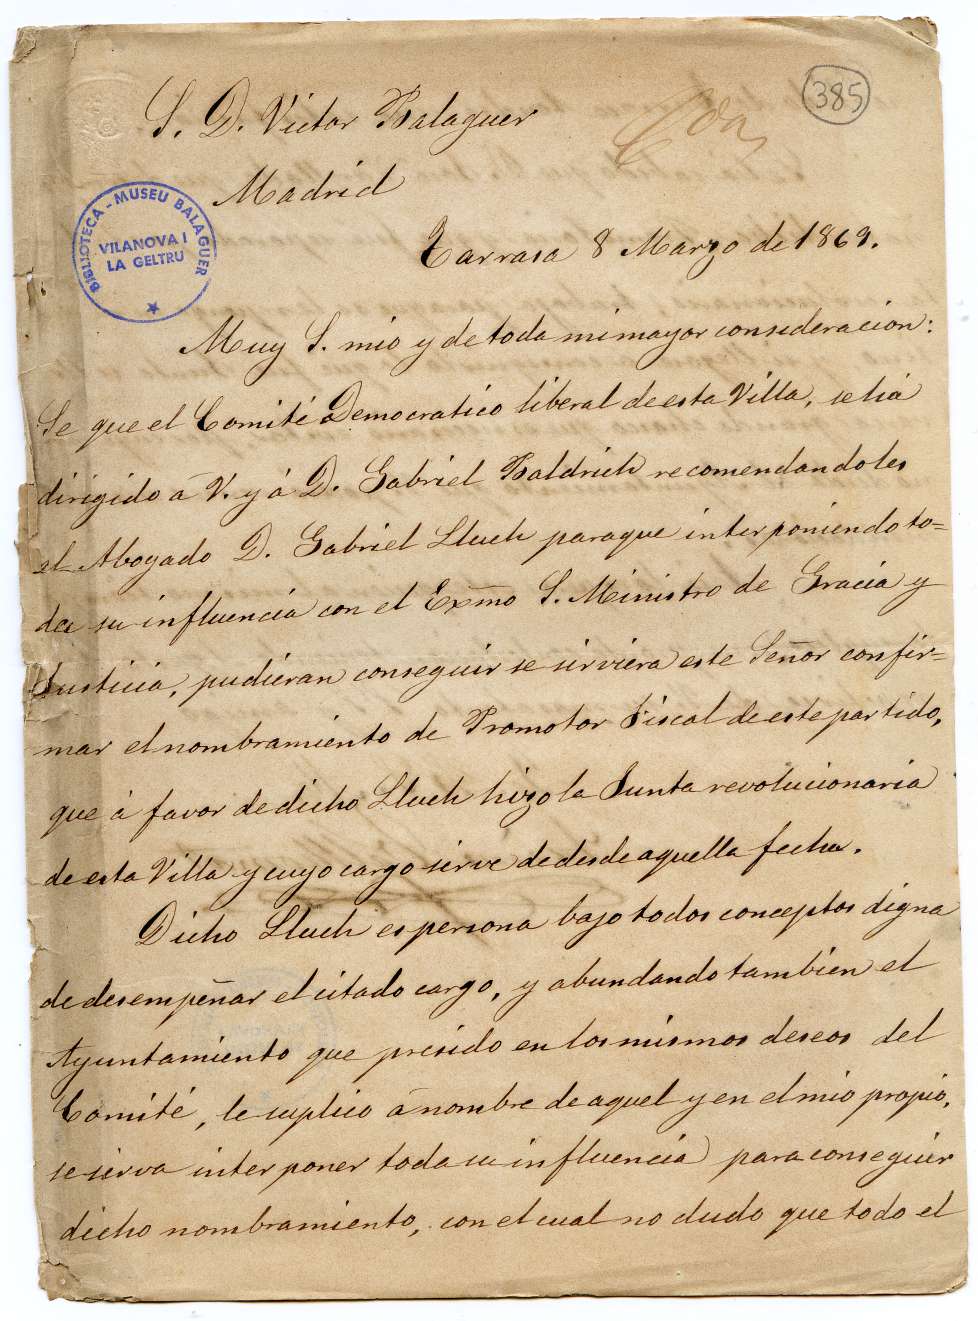 385
S. D. Victor Balaguer
Cda
Madrid
BIBLIOTECA - MUSEU BALAGUER
VILANOVA I
LA GELTRU
Tarrasa 8 Marzo de 1869.
Muy S. mio y de toda mi mayor consideracion:
Se que el Comité Democratico liberal de esta Villa, se há
dirigido á V. y á D. Gabriel Baldrich recomendandoles
el Abogado D. Gabriel Lluch paraque interponiendo to=
da su influencia con el Exmo S. Ministro de Gracia y
Justicia, pudieran conseguir se sirviera este Señor confir=
mar el nombramiento de Promotor Fiscal de este partido,
que á favor de dicho Lluch hizo la Junta revolucionaria
de esta Villa y cuyo cargo sirve de desde aquella fecha.
Dicho Lluch es persona bajo todos conceptos digna
de desempeñar el citado cargo, y abundando tambien el
Ayuntamiento que presido en los mismos deseos del
Comité, le suplico á nombre de aquel y en el mio propio,
se sirva interponer toda su influencia para conseguir
dicho nombramiento, con el cual no dudo que todo el